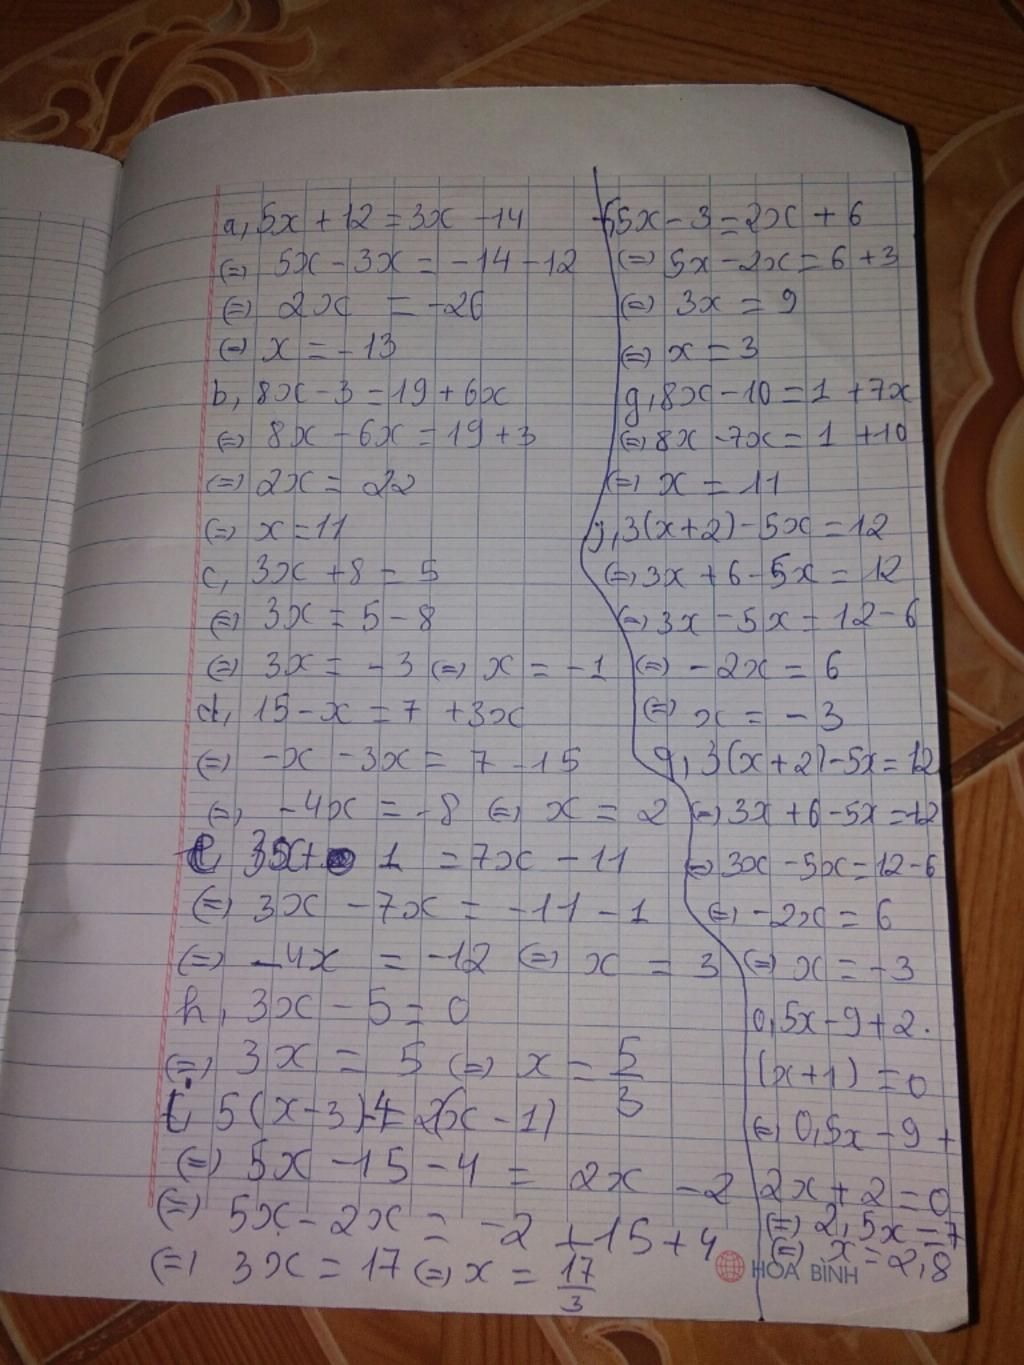 a, 5x + 12 = 3x - 14
(=) 5x - 3x = -14 - 12
(=) 2x = -26
(=) x = -13
b, 8x - 3 = 19 + 6x
(=) 8x - 6x = 19 + 3
(=) 2x = 22
(=) x = 11
c, 3x + 8 = 5
(=) 3x = 5 - 8
(=) 3x = -3 (=) x = -1
d, 15 - x = 7 + 3x
(=) -x - 3x = 7 - 15
(=) -4x = -8 (=) x = 2
e, 3x + 1 = 7x - 11
(=) 3x - 7x = -11 - 1
(=) -4x = -12 (=) x = 3
h, 3x - 5 = 0
(=) 3x = 5 (=) x = 5/3
i, 5(x-3)-4 = 2(x-1)
(=) 5x - 15 - 4 = 2x - 2
(=) 5x - 2x = -2 + 15 + 4
(=) 3x = 17 (=) x = 17/3
f, 5x - 3 = 2x + 6
(=) 5x - 2x = 6 + 3
(=) 3x = 9
(=) x = 3
g, 8x - 10 = 1 + 7x
(=) 8x - 7x = 1 + 10
(=) x = 11
3(x+2) - 5x = 12
(=) 3x + 6 - 5x = 12
(=) 3x - 5x = 12 - 6
(=) -2x = 6
(=) x = -3
3(x+2) - 5x = 12
(=) 3x + 6 - 5x = 12
(=) 3x - 5x = 12 - 6
(=) -2x = 6
(=) x = -3
0,5x - 9 + 2.
(x+1) = 0
(=) 0,5x - 9 +
2x + 2 = 0
(=) 2,5x = 7
(=) x = 2,8
HOA BÌNH